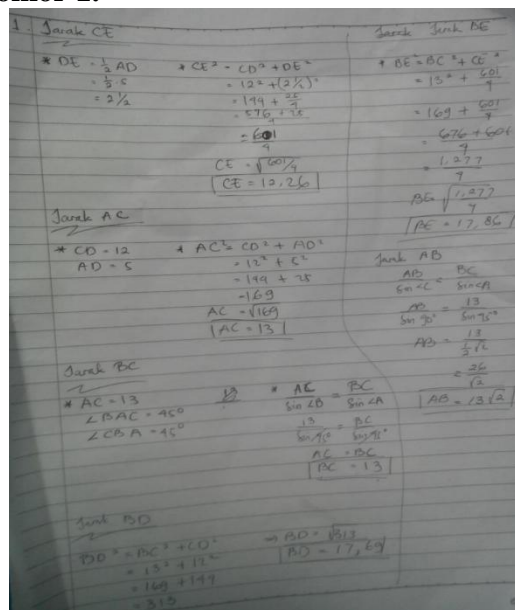 1. Jarak CE
* DE = 1/2 AD
= 1/2 . 5
= 2 1/2
* CE² = CD² + DE²
= 12² + (2 1/2)²
= 144 + 25/4
= 576 + 25
4
= 601
4
CE = √601/4
CE = 12,26
Jarak AC
* CD = 12
AD = 5
* AC² = CD² + AD²
= 12² + 5²
= 144 + 25
= 169
AC = √169
AC = 13
Jarak BC
* AC = 13
∠BAC = 45°
∠CBA = 45°
* AC = BC
Sin ∠B Sin ∠A
13 = BC
Sin 45° Sin 45°
AC = BC
BC = 13
Jarak BD
BD² = BC² + CD²
= 13² + 12²
= 169 + 144
= 313
→ BD = √313
BD = 17,69
Jarak BE
* BE² = BC² + CE²
= 13² + 601
4
= 169 + 601
4
= 676 + 601
4
= 1.277
4
BE √1,277
4
BE = 17,86
Jarak AB
AB = BC
Sin ∠C Sin ∠A
AB = 13
Sin 90° Sin 45°
AB = 13
1/2 √2
= 26
√2
AB = 13√2